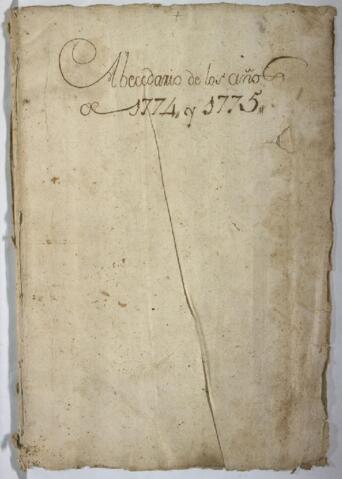 Abecedario de los años
de 1774, y 1775,,